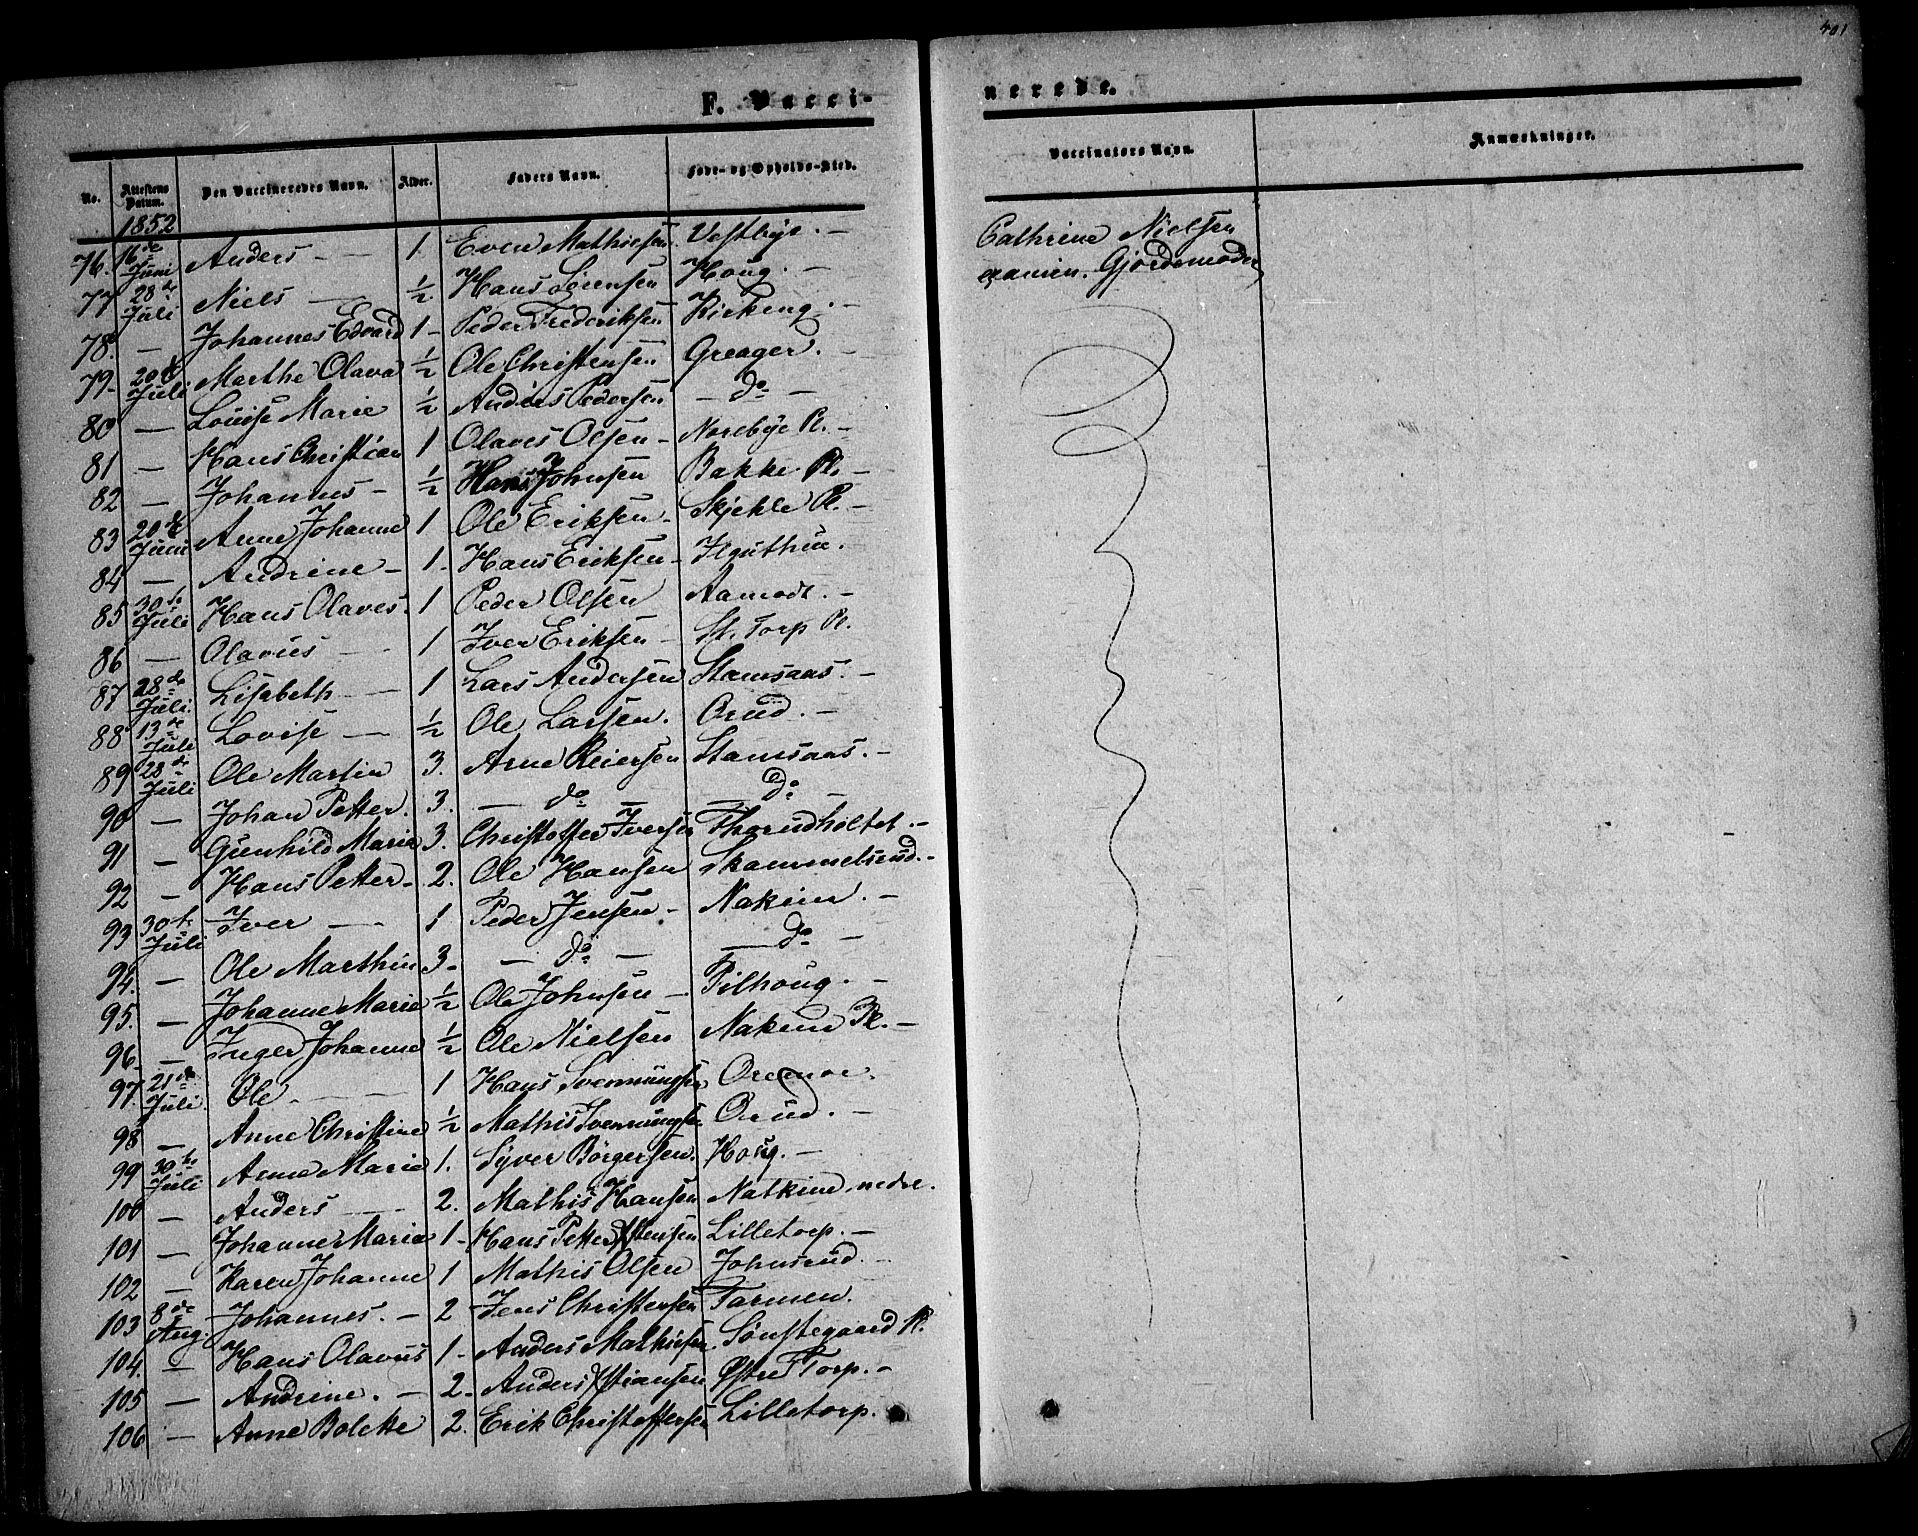 401
F. Vacci-
nerede.
No. Attestens Datum. Den Vaccineredes Navn. Alder. Faders Navn. Føde- og Opholds-Sted. Vaccinators Navn. Anmærkninger.
1852
76. 16de Juni Anders - 1. Even Mathiesen Vestbye. - Cathrine Nielsen
77 28de Juli Niels - 1/2 Hans Sørensen Houg. - examin. Gjordemoder
78. - Johannes Edvard 1 - Peder Frederiksen Kirkeng. -
79- 20de Juli Marthe Olava 1/2 Ole Christensen Greager. -
80 - Louise Marie 1/2 Anders Pedersen - do -
81 - Hans Christian 1 Olaves Olsen - Norebye Pl. -
82 - Johannes - 1/2 Hans Johnsen Bakke Pl. -
83 20de Juni Anne Johanne 1 Ole Eriksen - Skjehle Pl. -
84 - Andrine - 1. Hans Eriksen -
85 30te Juli Hans Olaves. 1 Peder Olsen Aamodt. -
86 - Olavus - 1 Iver Eriksen - St. Torp Pl.
87 28de Juli Lisabeth - 1 Lars Andersen Stamsaas. -
88 13de Juli Lovise - 1/2 Ole Larsen. Orud. -
89 28de Juli Ole Martin 3. Arne Reiersen Stamsaas. -
90 - Johan Petter. 3. - do - - do -
91 - Gunhild Marie 3. Christoffer Iversen Thorudholtet. -
92 - Hans Petter - 2. Ole Hansen Skammelsrud. -
93 30te Juli Iver - 1 Peder Jensen. - Nakim. -
94. - Ole Marthin 3 - - do - - do -
95. - Johanne Marie 1/2 Ole Johnsen - Pilhoug. -
96 - Inger Johanne 1/2 Ole Nielsen Nakim Pl. -
97. 21de Juli Ole - 1 Hans Svenningsen Oremoe.
98 - Anne Christine 1/2 Mathis Svenningsen Orud. -
99 30te Juli Anne Marie 1. Syver Børgersen. Houg. -
100 - Anders - 2. Mathis Hansen Natkim nedre.
101 - Johanne Maria 1 - Hans Petter Lilletorp. -
102 - Karen Johanne 1 Mathis Olsen Johnsrud. -
103 8de Aug. Johannes. - 2 Jens Christensen Tarmen.
104. - Hans Olavus 1 - Anders Mathiesen Sønstegaard Pl.
105 - Andrine. - 2. Anders Xstiansen Østre Torp. -
106 - Anne Bolette 2. Erik Christoffersen Lilletorp.